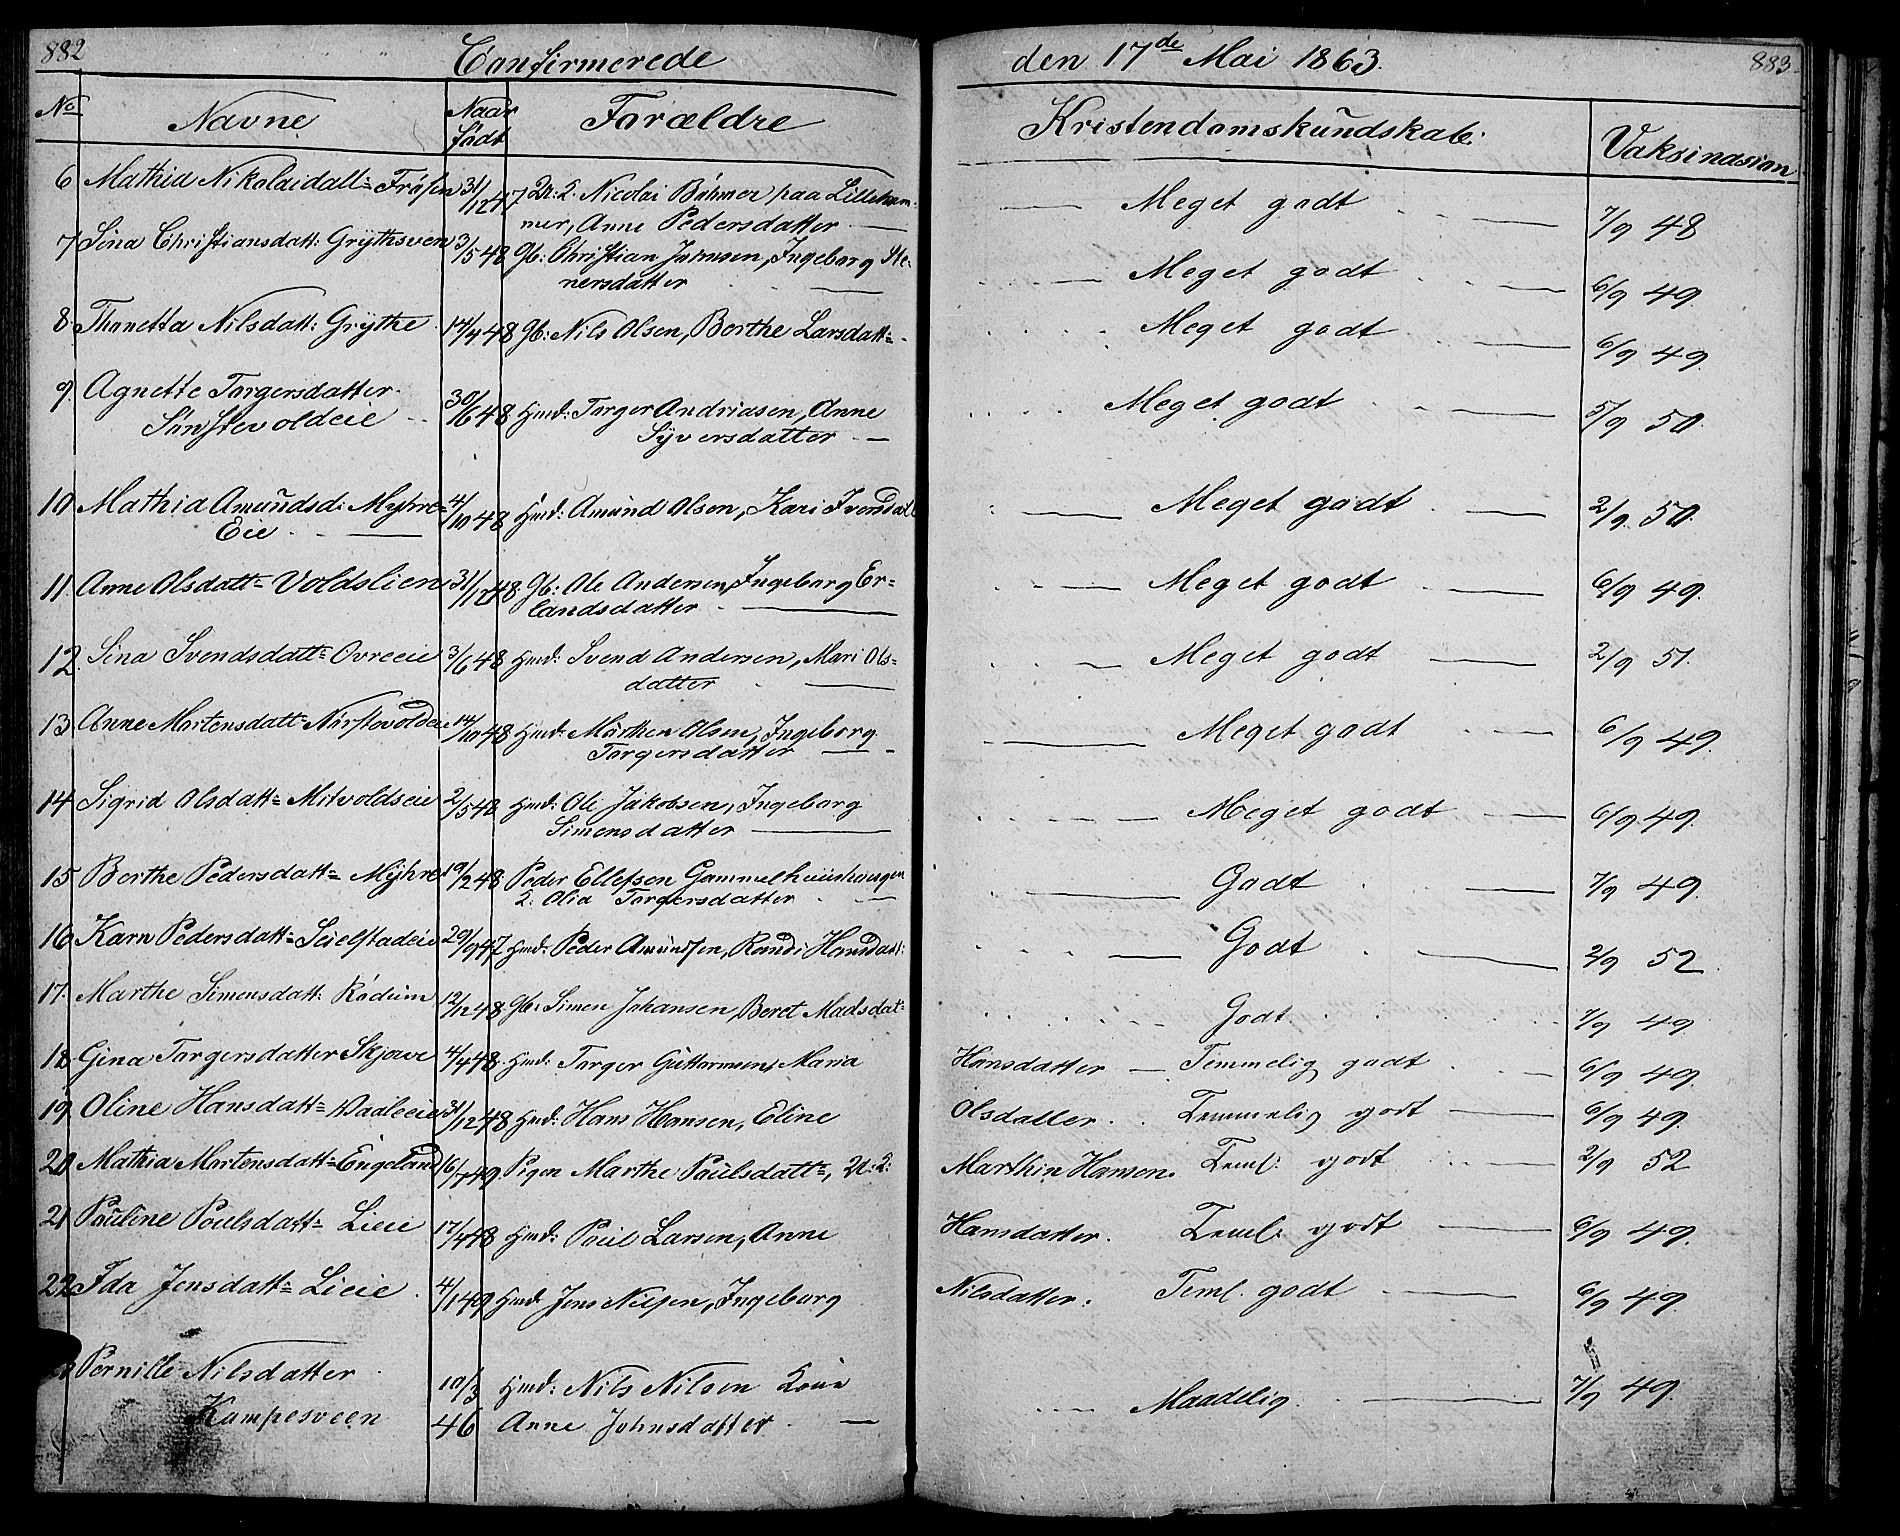 882
Confirmerede den 17de Mai 1863.
883
No Navne Naar Født Forældre Kristendomskundskab: Vaksinasion
6 Mathia Nikolaidatt= Frøsen 31/12 47 2: Nicolai Böhmer paa Lilleham-
mer, Anne Pedersdatter Meget godt 7/9 48
7 Sina Christiansdatt: Grythsveen 3/5 48 Gb: Christian Johnsen, Ingeborg Ste-
nersdatter Meget godt 6/9 49
8 Thonetta Nilsdatt: Grythe 14/4 48 Gb: Nils Olsen, Berthe Larsdatt= Meget godt 6/9 49
9 Agnette Torgersdatter
Sønstevoldeie 30/6 48 Hmd: Torger Andriasen, Anne
Syversdatter Meget godt 5/9 50
10 Mathia Amundsd: Myhre=
Eie 4/10 48 Hmd: Amund Olsen, Kari Iversdatt Meget godt 2/9 50
11 Anne Olsdatt= Voldslien 31/12 48 Gb: Ole Andersen, Ingeborg Er=
landsdatter Meget godt 6/9 49
12 Sina Svendsdatt= Ovreeie 3/6 48 Hmd: Svend Andersen, Mari Ols=
datter Meget godt 2/9 51
13 Anne Martensdatt= Nørstevoldeie 14/10 48 Hmd: Marthen Olsen, Ingeborg
Torgersdatter Meget godt 6/9 49
14 Sigrid Olsdatt= Mitvoldseie 2/5 48 Hmd: Ole Jakobsen, Ingeborg
Simensdatter Meget godt 6/9 49
15 Berthe Pedersdatt= Myhre 19/2 48 Peder Ellefsen Gammelhuushaugen
2: Olia Torgersdatter Godt 7/9 49
16 Karn Pedersdatt= Seielstadeie 29/9 47 Hmd: Peder Amundsen, Randi Hansdatt: Godt 2/9 52
17 Marthe Simensdatt: Rødum 12/12 48 Gb: Simen Johansen, Beret Madsdat= Godt 7/9 49
18 Gina Torgersdatter Skjowe 4/4 48 Hmd: Torger Guttormsen, Maria Hansdatter Temmelig godt 6/9 49
19 Oline Hansdatt= Waaleeie 31/12 48 Hmd: Hans Hansen, Eline Olsdatter Temmelig godt 6/9 49
20 Mathia Martensdatt= Engeland 16/7 49 Pigen Marthe Paulsdatt=, U: 2: Marthin Hansen. Teml: godt 2/9 52
21 Pauline Poulsdatt= Lieie 17/4 48 Hmd: Poul Larsen, Anne Hansdatter. Teml: godt 6/9 49
22 Ida Jensdatt= Lieie 4/1 49 Hmd: Jens Nilsen, Ingeborg Nilsdatter. Teml. godt 6/9 49
Pernille Nilsdatter
Kampesveen 10/3 46 Hmd: Nils Nilsen
Anne Johnsdatter Maadelig 7/9 49